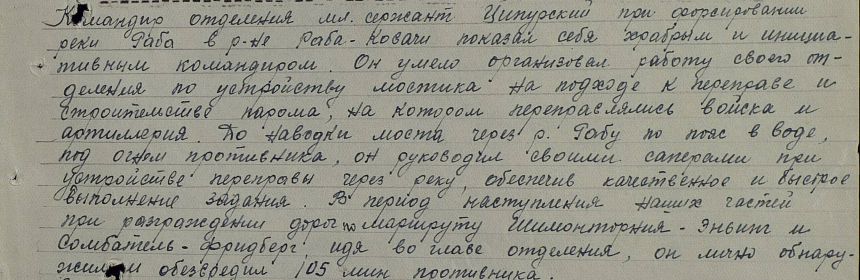 Командир отделения мл. сержант Ципурский при форсировании
реки Раба в р-не Раба-Ковачи показал себя храбрым и инициа-
тивным командиром. Он умело организовал работу своего от-
деления по устройству мостика на подходе к переправе и
строительстве парома, на котором переправлялись войска и
артиллерия. До наводки моста через р. Рабу по пояс в воде,
под огнем противника, он руководил своими саперами при
устройстве переправы через реку, обеспечив качественное и быстрое
выполнение задания. В период наступления наших частей
при разграждении дорог по маршруту Шимонторния - Эньинг и
Сомбатель - Фридберг, идя во главе отделения, он лично обнару-
жил и обезвредил 105 мин противника.